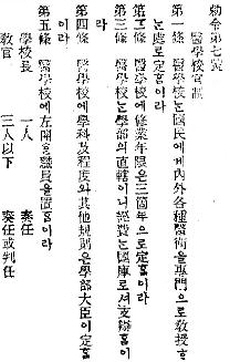 勅令第七號
醫學校官制
第一條 醫學校는國民에게內外各種醫術을專門으로敎授ᄒ
는處로定홈이라
第二條 醫學校에修業年限은三箇年으로定홈이라
第三條 醫學校는學部의直轄이니經費는國庫로셔支辦홈이
라
第四條 醫學校에學科及程度와其他規則은學部大臣이定홈
이라
第五條 醫學校에左開ᄒᆞᆫ職員을置홈이라
學校長 一人 奏任
敎官 三人以下 奏任或判任